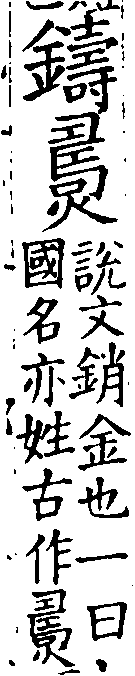 鑄
說文銷金也一曰
國名亦姓古作